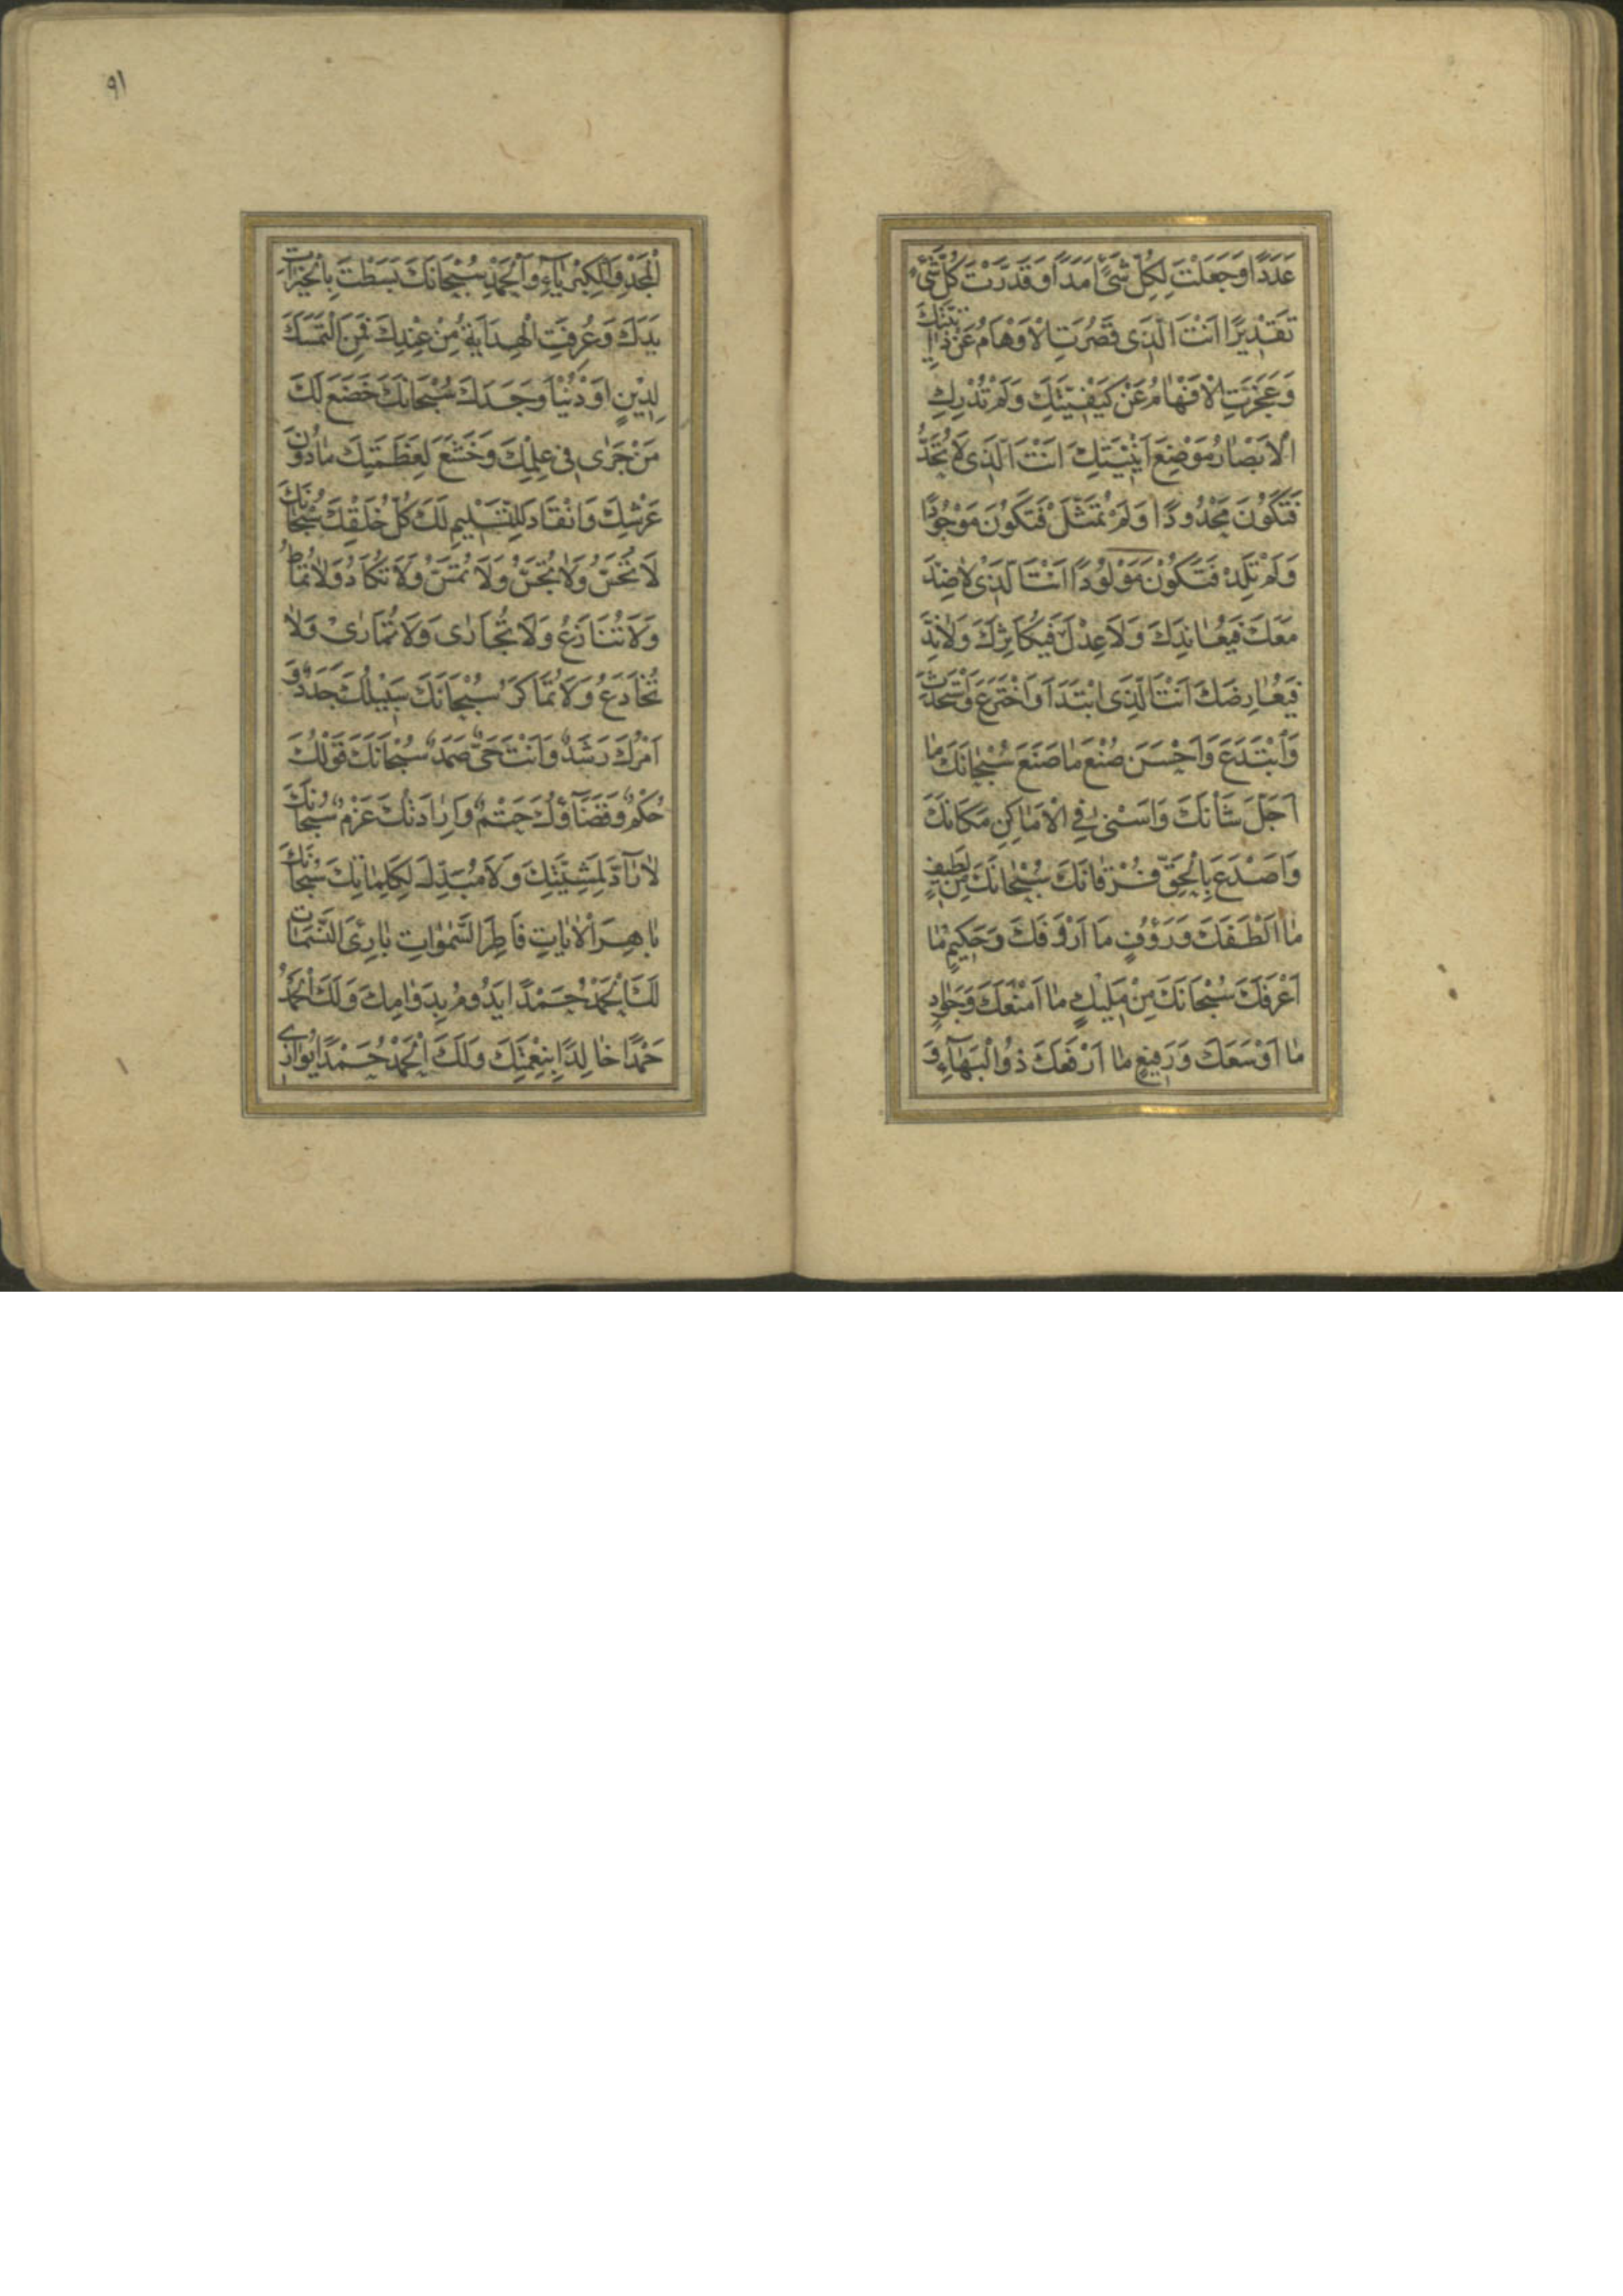 عَدَدًا وَجَعَلْتَ لِكُلِّ شَیْءٍ اَمَدًا وَقَدَّرْتَ كُلَّ شَیْءٍ
تَقْدِيرًا اَنْتَ الَّذِی قَصُرَتِ الْاَوْهَامُ عَنْ ذَاتِيَّتِكَ
وَعَجَزَتِ الْاَفْهَامُ عَنْ كَيْفِيَّتِكَ وَلَمْ تُدْرِكِ
الْاَبْصَارُ مَوْضِعَ اَيْنِيَّتِكَ اَنْتَ الَّذِی لَا تُحَدُّ
فَتَكُونَ مَحْدُودًا وَلَمْ تُمَثَّلْ فَتَكُونَ مَوْجُودًا
وَلَمْ تَلِدْ فَتَكُونَ مَوْلُودًا اَنْتَ الَّذِی لَا ضِدَّ
مَعَكَ فَيُعَانِدَكَ وَلَا عِدْلَ فَيُكَاثِرَكَ وَلَا نِدَّ
فَيُعَارِضَكَ اَنْتَ الَّذِی ابْتَدَاَ وَاخْتَرَعَ وَاسْتَحْدَثَ
وَابْتَدَعَ وَاَحْسَنَ صُنْعَ مَا صَنَعَ سُبْحَانَكَ مَا
اَجَلَّ شَأْنَكَ وَاَسْنٰى فِی الْاَمَاكِنِ مَكَانَكَ
وَاَصْدَعَ بِالْحَقِّ فُرْقَانَكَ سُبْحَانَكَ مِنْ لَطِيفٍ
مَا اَلْطَفَكَ وَرَؤُفٍ مَا اَرْؤَفَكَ وَحَكِيمٍ مَا
اَعْرَفَكَ سُبْحَانَكَ مِنْ مَلِيكٍ مَا اَمْنَعَكَ وَجَوَادٍ
مَا اَوْسَعَكَ وَرَفِيعٍ مَا اَرْفَعَكَ ذُو الْبَهَآءِ وَ
٩١
الْمَجْدِ وَالْكِبْرِيَآءِ وَالْحَمْدِ سُبْحَانَكَ بَسَطْتَ بِالْخَيْرَاتِ
يَدَكَ وَعُرِفَتِ الْهِدَايَةُ مِنْ عِنْدِكَ فَمَنِ الْتَمَسَكَ
لِدِينٍ اَوْ دُنْيَا وَجَدَكَ سُبْحَانَكَ خَضَعَ لَكَ
مَنْ جَرٰى فِی عِلْمِكَ وَخَشَعَ لِعَظَمَتِكَ مَا دُونَ
عَرْشِكَ وَانْقَادَ لِلتَّسْلِيمِ لَكَ كُلُّ خَلْقِكَ سُبْحَانَكَ
لَا تُحَسُّ وَلَا تُجَسُّ وَلَا تُمَسُّ وَلَا تُكَادُ وَلَا تُمَاطُ
وَلَا تُنَازَعُ وَلَا تُجَارٰى وَلَا تُمَارٰى وَلَا
تُخَادَعُ وَلَا تُمَاكَرُ سُبْحَانَكَ سَبِيلُكَ جَدَدٌ وَ
اَمْرُكَ رَشَدٌ وَاَنْتَ حَیٌّ صَمَدٌ سُبْحَانَكَ قَوْلُكَ
حُكْمٌ وَقَضَآؤُكَ حَتْمٌ وَاِرَادَتُكَ عَزْمٌ سُبْحَانَكَ
لَا رَآدَّ لِمَشِيَّتِكَ وَلَا مُبَدِّلَ لِكَلِمَاتِكَ سُبْحَانَكَ
بَاهِرَ الْاٰيَاتِ فَاطِرَ السَّمٰوَاتِ بَارِئَ النَّسَمَاتِ
لَكَ الْحَمْدُ حَمْدًا يَدُومُ بِدَوَامِكَ وَلَكَ الْحَمْدُ
حَمْدًا خَالِدًا بِنِعْمَتِكَ وَلَكَ الْحَمْدُ حَمْدًا يُوَازِی